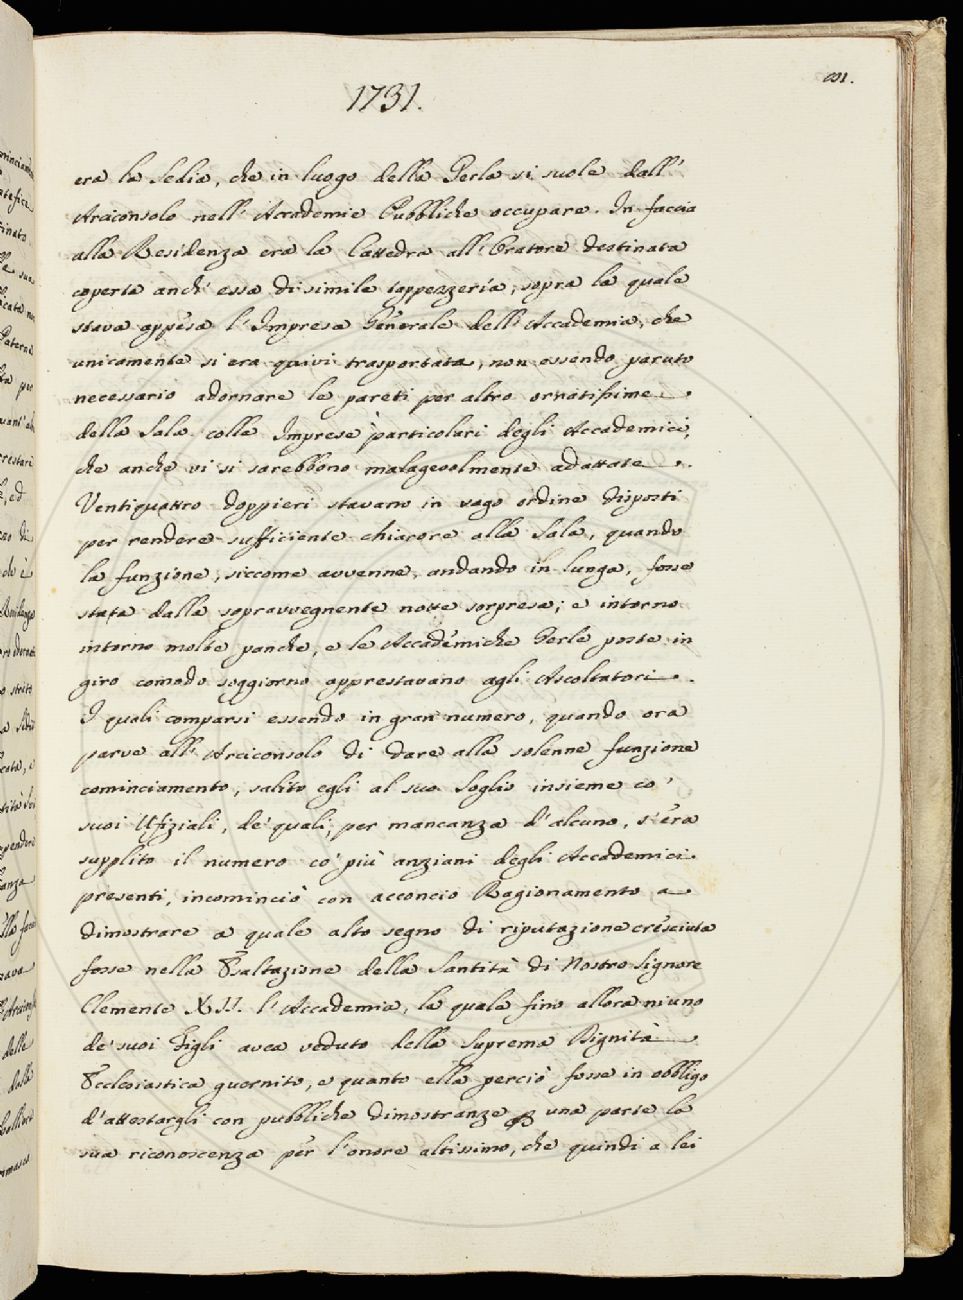 1731.
era la Sedia, che in luogo della Gerla si suole dall'
Arciconsolo nell' Accademie Pubbliche occupare. In faccia
alla Residenza era la Cattedra all' Oratore destinata
coperta anch' essa di simile tappezzeria, sopra la quale
stava appesa l' Impresa Generale dell' Accademia, che
unicamente si era quivi trasportata, non essendo paruto
necessario adornare le pareti per altro ornatissime
della Sala colle Imprese particolari degli Accademici,
che anche vi si sarebbono malagevolmente adattate.
Ventiquattro doppieri stavano in vago ordine disposti
per rendere sufficiente chiarore alla Sala, quando
la funzione, siccome avvenne, andando in lunga, fosse
stata dalla sopravvegnente notte sorpresa; e intorno
intorno molte panche, e le Accademiche Gerle poste in
giro comodo soggiorno apprestavano agli Ascoltatori.
I quali comparsi essendo in gran numero, quando ora
parve all' Arciconsolo di dare alla solenne funzione
cominciamento, salito egli al suo Soglio insieme co'
suoi Ufiziali, de' quali, per mancanza d' alcuno, s' era
supplito il numero co' più anziani degli Accademici
presenti, incominciò con acconcio Ragionamento a
dimostrare a quale alto segno di riputazione cresciuta
fosse nella Esaltazione della Santità di Nostro Signore
Clemente XII. l' Accademia, la quale fino allora niuno
de' suoi Figli avea veduto della Suprema Dignità
Ecclesiastica guernito, e quanto ella perciò fosse in obbligo
d' attestargli con pubbliche dimostranze una parte la
sua riconoscenza per l' onore altissimo, che quindi a lei